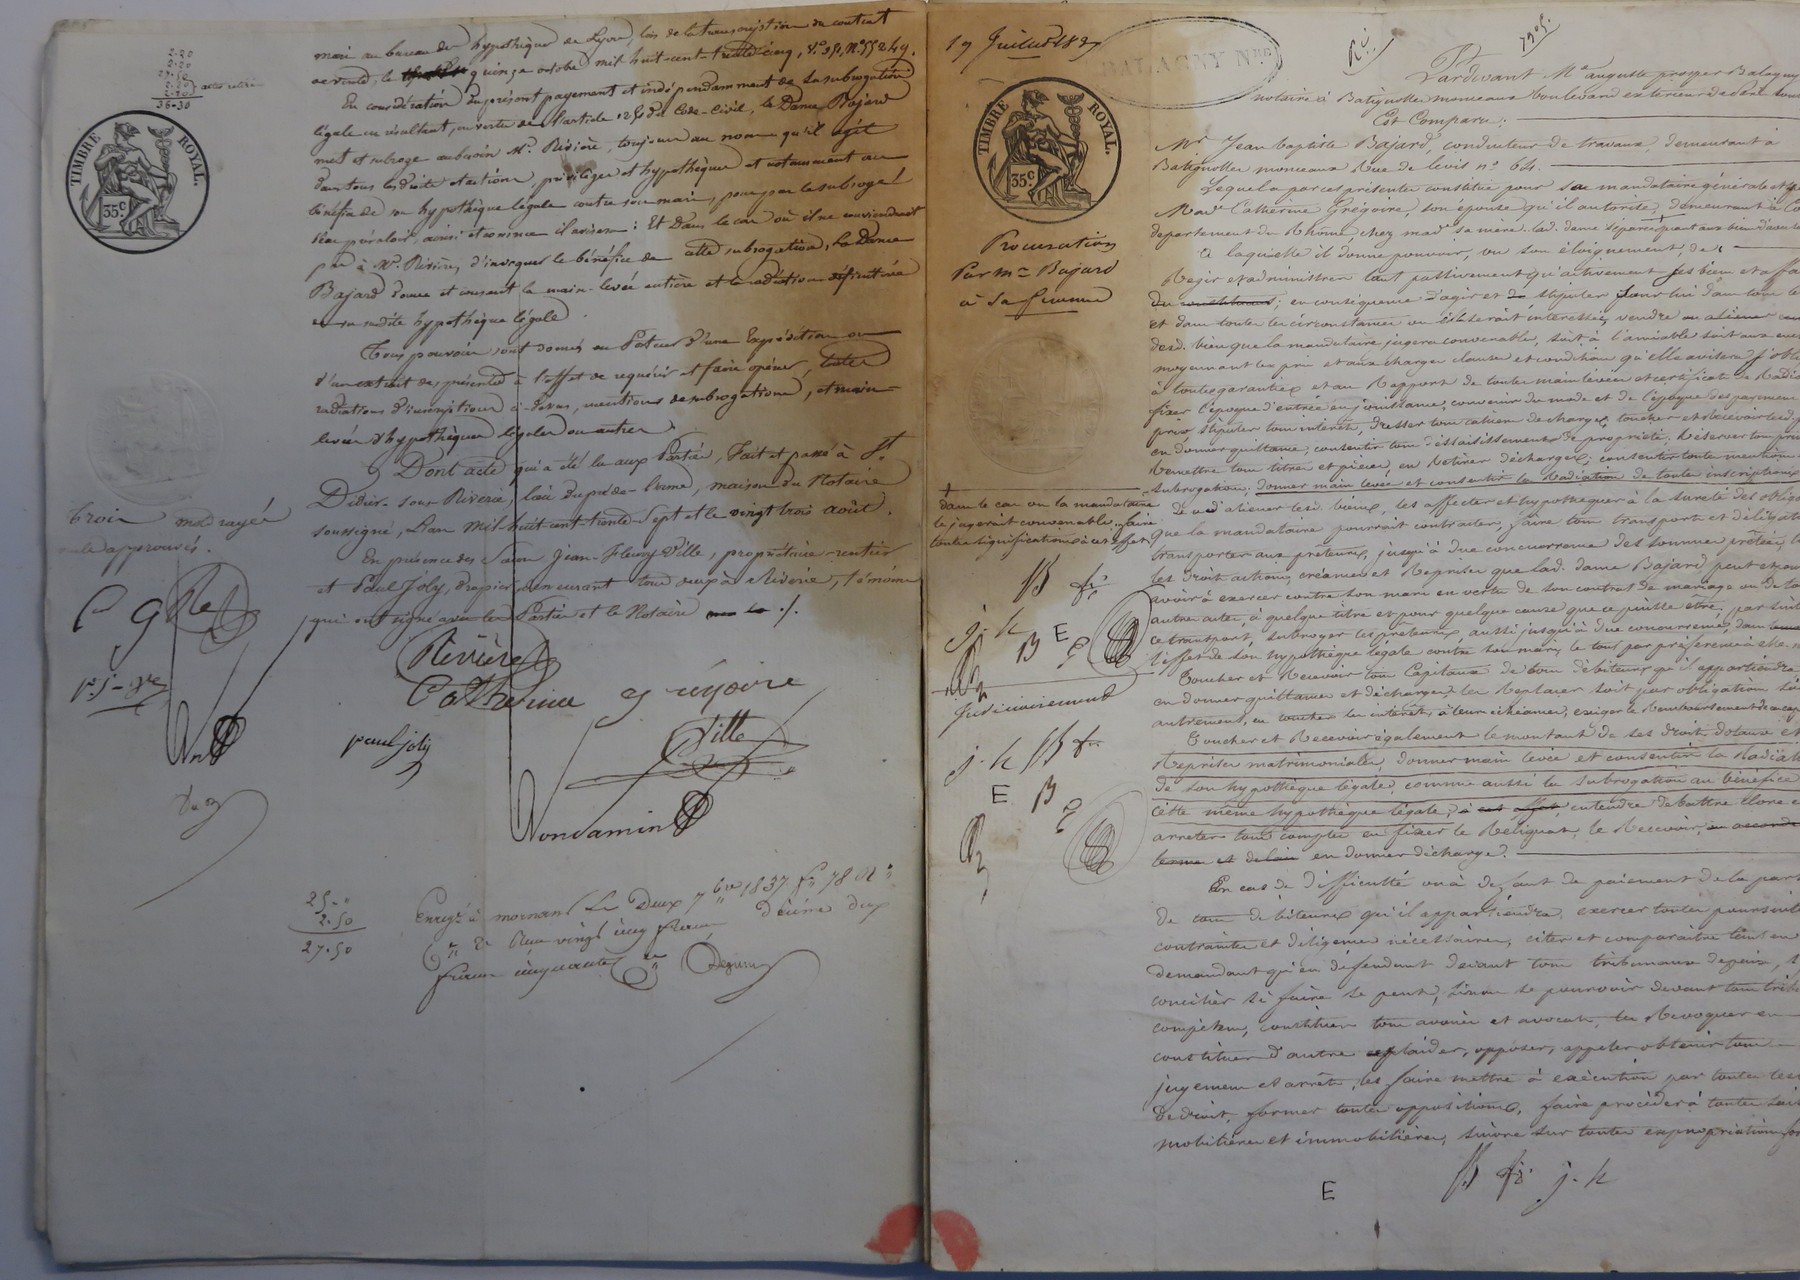 2.20
2.20
27.50
36-30
TIMBRE ROYAL.
35c
mari au bureau des hypothèques de Lyon, lors de la transcription du contrat
de vente, le quinze octobre mil huit-cent-trente-cinq, Vol. 351, No 55249.
En considération du présent payement et indépendamment de la subrogation
légale en résultant, en vertu de l'article 1251 du Code-Civil, la Dame Bajard
met et subroge au besoin Mr. Rivière, toujours au nom qu'il agit
dans tous les droits et actions, privilèges et hypothèques et notamment au
bénéfice de son hypothèque légale contre son mari, pour par le subrogé
s'en prévaloir, ainsi et comme il avisera: Et Dans le cas où il ne conviendrait
pas à Mr. Rivière, d'invoquer le bénéfice de cette subrogation, La Dame
Bajard donne et consent la main-levée entière et la radiation définitive
de sa susdite hypothèque légale.
Tous pouvoirs sont donnés au Porteur d'une Expédition ou
d'un extrait des présentes à l'effet de requérir et faire opérer, toutes
radiations d'inscriptions ci-dessus, mentions de subrogations, et main-
levées d'hypothèques légales ou autres.
Dont acte qui a été lu aux Parties, Fait et passé à St.
Didier-sous-Riverie, lieu du pré-de-lorme, maison du Notaire
soussigné, L'an Mil huit cent trente-Sept et le vingt trois août.
En présence des Sieurs Jean-Fleury Ville, propriétaire-rentier
et Paul Joly, drapier, demeurant tous deux à Riverie, témoins
qui ont signé avec les Parties et le Notaire
trois mots rayés
nuls approuvés.
C g Re
Rivière
Catherine grégoire
paul joly
Ville
25-"
2.50
27.50
Enregé à mornant Le Deux 7bre 1837 fo 78 Ro
Reçu vingt cinq francs Décime deux
francs cinquante
19 Juillet 1837
BALAGNY NRE
TIMBRE ROYAL.
35c
Procuration
Par Mr Bajard
à Sa femme
Pardevant Me auguste prosper Balagny
notaire à Batignolles monceaux boulevard extérieur
Est Comparu:
Mr Jean baptiste Bajard, conducteur de travaux, demeurant à
Batignolles monceaux Rue de levis no 64.
Lequel a par ces présentes constitué pour sa mandataire générale et
Made Catherine Grégoire, son épouse qu'il autorise, demeurant à
département du Rhône chez made sa mère
A laquelle il donne pouvoir, vu son éloignement, de:
Régir et administrer tant passivement qu'activement ses biens et
en conséquence d'agir et stipuler pour lui dans tous
et dans toutes les circonstances où il serait intéressé, vendre ou aliéner
desd. biens que la mandataire jugera convenable, soit à l'amiable soit aux
moyennant les prix et aux charges clauses et conditions qu'elle avisera
à toutes garanties et au Rapport de toutes mainlevées et certificats de
fixer l'époque d'entrée en jouissance, convenir du mode et de l'époque des paiements
prix stipuler tous intérêts, dresser tous cahiers de charges, toucher et recevoir
en donner quittance, consentir tous déssaisissements de propriété,
Remettre tous titres et pièces, en Retirer décharges; consentir toutes mentions
subrogations; donner main levée et consentir la Radiation de toutes inscriptions
dans le cas où la mandataire
le jugerait convenable, faire
toutes significations à cet effet
aliéner lesd. biens, les affecter et hypothéquer à la sureté des
que la mandataire pourrait contracter, faire tous transports et
transporter aux prêteurs, jusqu'à due concurrence des sommes prêtées,
les droits actions, créances et Reprises que lad. dame Bajard peut
avoir à exercer contre son mari en vertu de son contrat de mariage ou de
autres actes, à quelque titre et pour quelque cause que ce puisse être, par suite
ce transport, subroger les prêteurs, aussi jusqu'à due concurrence, dans
l'effet de son hypothèque légale contre son mari, le tout par préférence à
Toucher et Recevoir tous Capitaux de tous débiteurs qu'il appartiendra
en donner quittances et décharges, les Replacer soit par obligation
autrement, en toucher les intérêts, à leurs échéances, exiger le Remboursement
judiciairement
Toucher et Recevoir également le montant de ses droits, dotaux et
Reprises matrimoniales, donner main levée et consentir la Radiation
de son hypothèque légale, comme aussi la subrogation au bénéfice
cette même hypothèque légale, entendre débattre clore
arrêter tous comptes en fixer le Reliquat, le Recevoir,
en donner décharge.
En cas de difficulté ou à défaut de paiement de la part
de tous débiteurs qu'il appartiendra, exercer toutes poursuites
contraintes et diligences nécessaires, citer et comparaître tant en
demandant qu'en défendant devant tous tribunaux de paix,
concilier si faire se peut, sinon se pourvoir devant tous
compétens, constituer tous avoués et avocats, les Révoquer en
constituer d'autres, plaider, opposer, appeler obtenir tous
jugemens et arrêts, les faire mettre à exécution par toutes
de droit, former toutes oppositions, faire procéder à toutes
mobilières et immobilières, suivre sur toutes expropriations
E
j. h